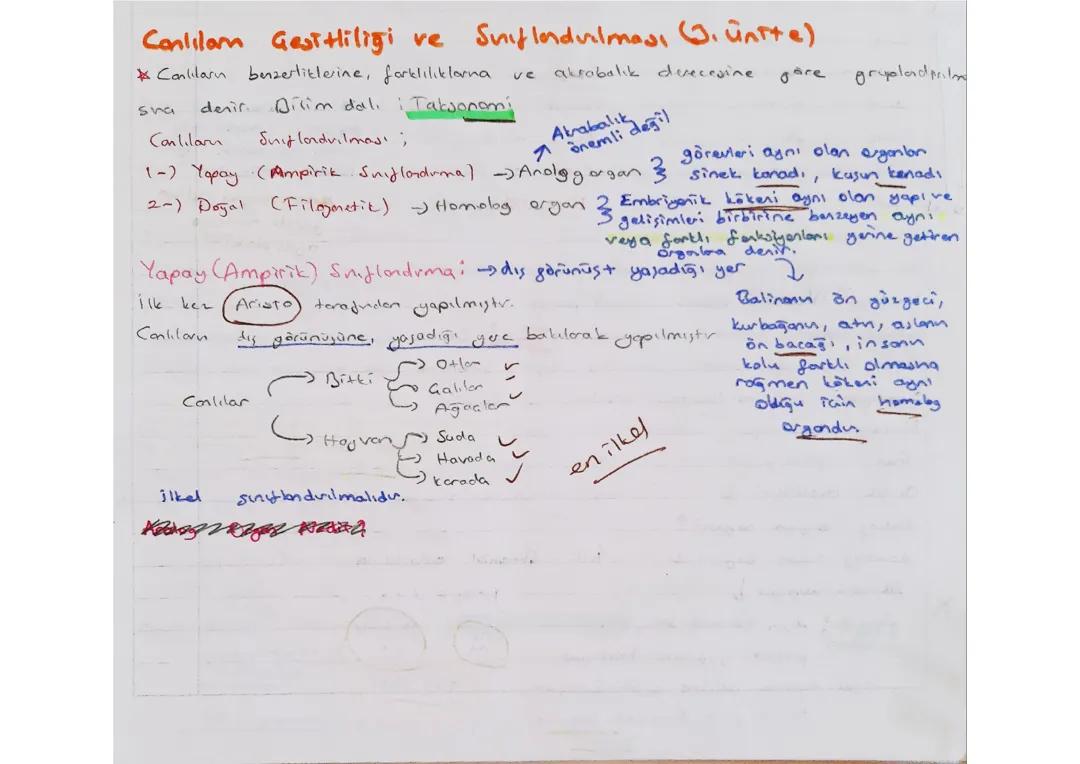 Canlıların Çeşitliliği ve Sınıflandırılması (3. Ünite)
* Canlıların benzerliklerine, farklılıklarına ve akrabalık derecesine göre gruplandırılma
sına denir. Bilim dalı : Taksonomi
Canlıların Sınıflandırılması ;
Akrabalık önemli değil
1-) Yapay (Ampirik Sınıflandırma) → Analog organ } görevleri aynı olan organlar
sinek kanadı, kuşun kanadı
2-) Doğal (Filogenetik) → Homolog organ } Embriyonik kökeni aynı olan yapı ve
gelişimleri birbirine benzeyen aynı
veya farklı fonksiyonları yerine getiren
organlara denir.
Yapay (Ampirik) Sınıflandırma : → dış görünüş + yaşadığı yer
İlk kez Aristo tarafından yapılmıştır.
Canlıların dış görünüşüne, yaşadığı yere bakılarak yapılmıştır
Canlılar
→ Bitki
→ Otlar ✓
→ Çalılar ✓
→ Ağaçlar ✓
→ Hayvan
→ Suda ✓
→ Havada ✓
→ Karada ✓
en ilkel
Balinanın ön yüzgeci,
kurbağanın, atın, aslanın
ön bacağı, insanın
kolu farklı olmasına
rağmen kökeni aynı
olduğu için homolog
organdır.
ilkel sınıflandırılmalıdır.